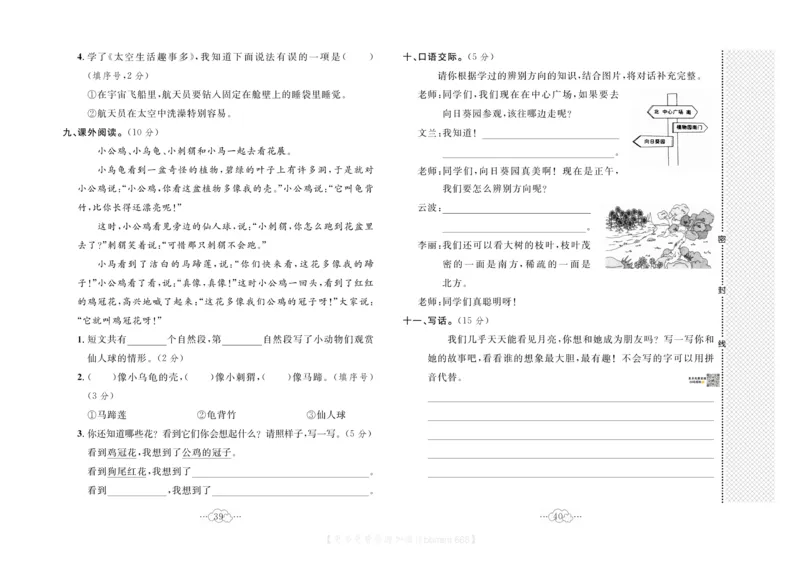 4. 学了《太空生活趣事多》,我知道下面说法有误的一项是(　　)
(填序号,2 分)
①在宇宙飞船里,航天员要钻入固定在舱壁上的睡袋里睡觉。
②航天员在太空中洗澡特别容易。
九、课外阅读。(10 分)
小公鸡、小乌龟、小刺猬和小马一起去看花展。
小乌龟看到一盆奇怪的植物,碧绿的叶子上有许多洞,于是就对
小公鸡说:“小公鸡,你看这盆植物多像我的壳。”小公鸡说:“它叫龟背
竹,比你长得还漂亮呢!”
这时,小公鸡看见旁边的仙人球,说:“小刺猬,你怎么跑到花盆里
去了?”刺猬笑着说:“可惜那只刺猬不会跑。”
小马看到了洁白的马蹄莲,说:“你们快来看,这花多像我的蹄
子!”小公鸡看了看,说:“真像,真像!”这时小公鸡一回头,看到了红红
的鸡冠花,高兴地喊了起来:“这花多像我们公鸡的冠子呀!”大家说:
“它就叫鸡冠花呀!”
1. 短文共有________个自然段,第________自然段写了小动物们观赏
仙人球的情形。(2 分)
2. (　　)像小乌龟的壳,(　　)像小刺猬,(　　)像马蹄。(填序号)
(3 分)
①马蹄莲　　②龟背竹　　③仙人球
3. 你还知道哪些花? 看到它们你会想起什么? 请照样子,写一写。(5 分)
看到鸡冠花,我想到了公鸡的冠子。
看到狗尾红花,我想到了________________________________。
看到____________,我想到了____________________________。
39
十、口语交际。(5 分)
请你根据学过的辨别方向的知识,结合图片,将对话补充完整。
老师:同学们,我们现在在中心广场,如果要去
向日葵园参观,该往哪边走呢?
北 中心广场 南
植物园南门
向日葵园
文兰:我知道! ____________________________
____________________________________。
老师:同学们,向日葵园真美啊! 现在是正午,
我们要怎么辨别方向呢?
云波:________________________________
______________________________。
李丽:我们还可以看大树的枝叶,枝叶茂
密的一面是南方,稀疏的一面是
北方。
老师:同学们真聪明呀!
十一、写话。(15 分)
我们几乎天天能看见月亮,你想和她成为朋友吗? 写一写你和
她的故事吧,看看谁的想象最大胆,最有趣! 不会写的字可以用拼
音代替。
40
密
封
线